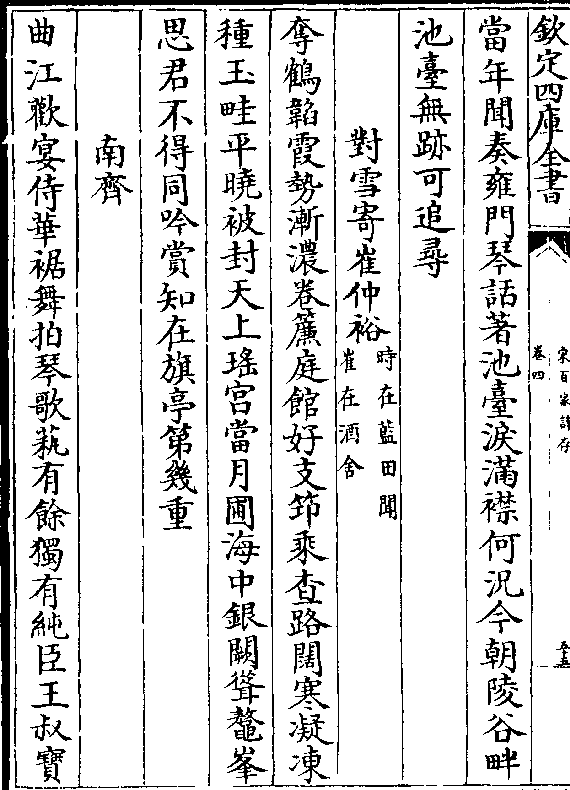 欽定四庫全書
宋百家詩存
卷四
當年聞奏雍門琴話著池臺淚滿襟何況今朝陵谷畔
池臺無跡可追尋
對雪寄崔仲裕
時在藍田聞
崔在酒舍
奪鶴韜霞勢漸濃卷簾庭館好支笻乘查路闊寒凝凍
種玉畦平曉被封天上瑤宮當月圃海中銀闕聳鼇峯
思君不得同吟賞知在旗亭第幾重
南齊
曲江歡宴侍華裾舞拍琴歌藝有餘獨有純臣王叔寶